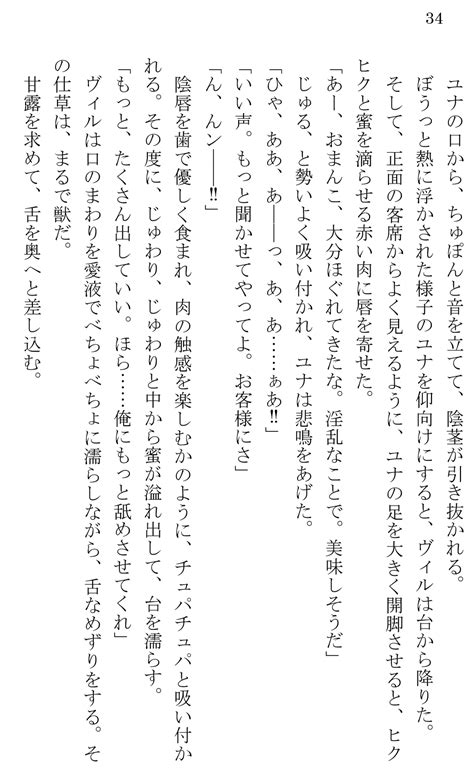 34
ユナの口から、ちゅぽんと音を立てて、陰茎が引き抜かれる。
ぼうっと熱に浮かされた様子のユナを仰向けにすると、ヴィルは台から降りた。
そして、正面の客席からよく見えるように、ユナの足を大きく開脚させると、ヒク
ヒクと蜜を滴らせる赤い肉に唇を寄せた。
「あー、おまんこ、大分ほぐれてきたな。淫乱なことで。美味しそうだ」
じゅる、と勢いよく吸い付かれ、ユナは悲鳴をあげた。
「ひゃ、ああ、あ――っ、あ、あ……ぁあ!!」
「いい声。もっと聞かせてやってよ。お客様にさ」
「ん、んン――!!」
陰唇を歯で優しく食まれ、肉の触感を楽しむかのように、チュパチュパと吸い付か
れる。その度に、じゅわり、じゅわりと中から蜜が溢れ出して、台を濡らす。
「もっと、たくさん出していい。ほら……俺にもっと舐めさせてくれ」
ヴィルは口のまわりを愛液でべちょべちょに濡らしながら、舌なめずりをする。そ
の仕草は、まるで獣だ。
甘露を求めて、舌を奥へと差し込む。